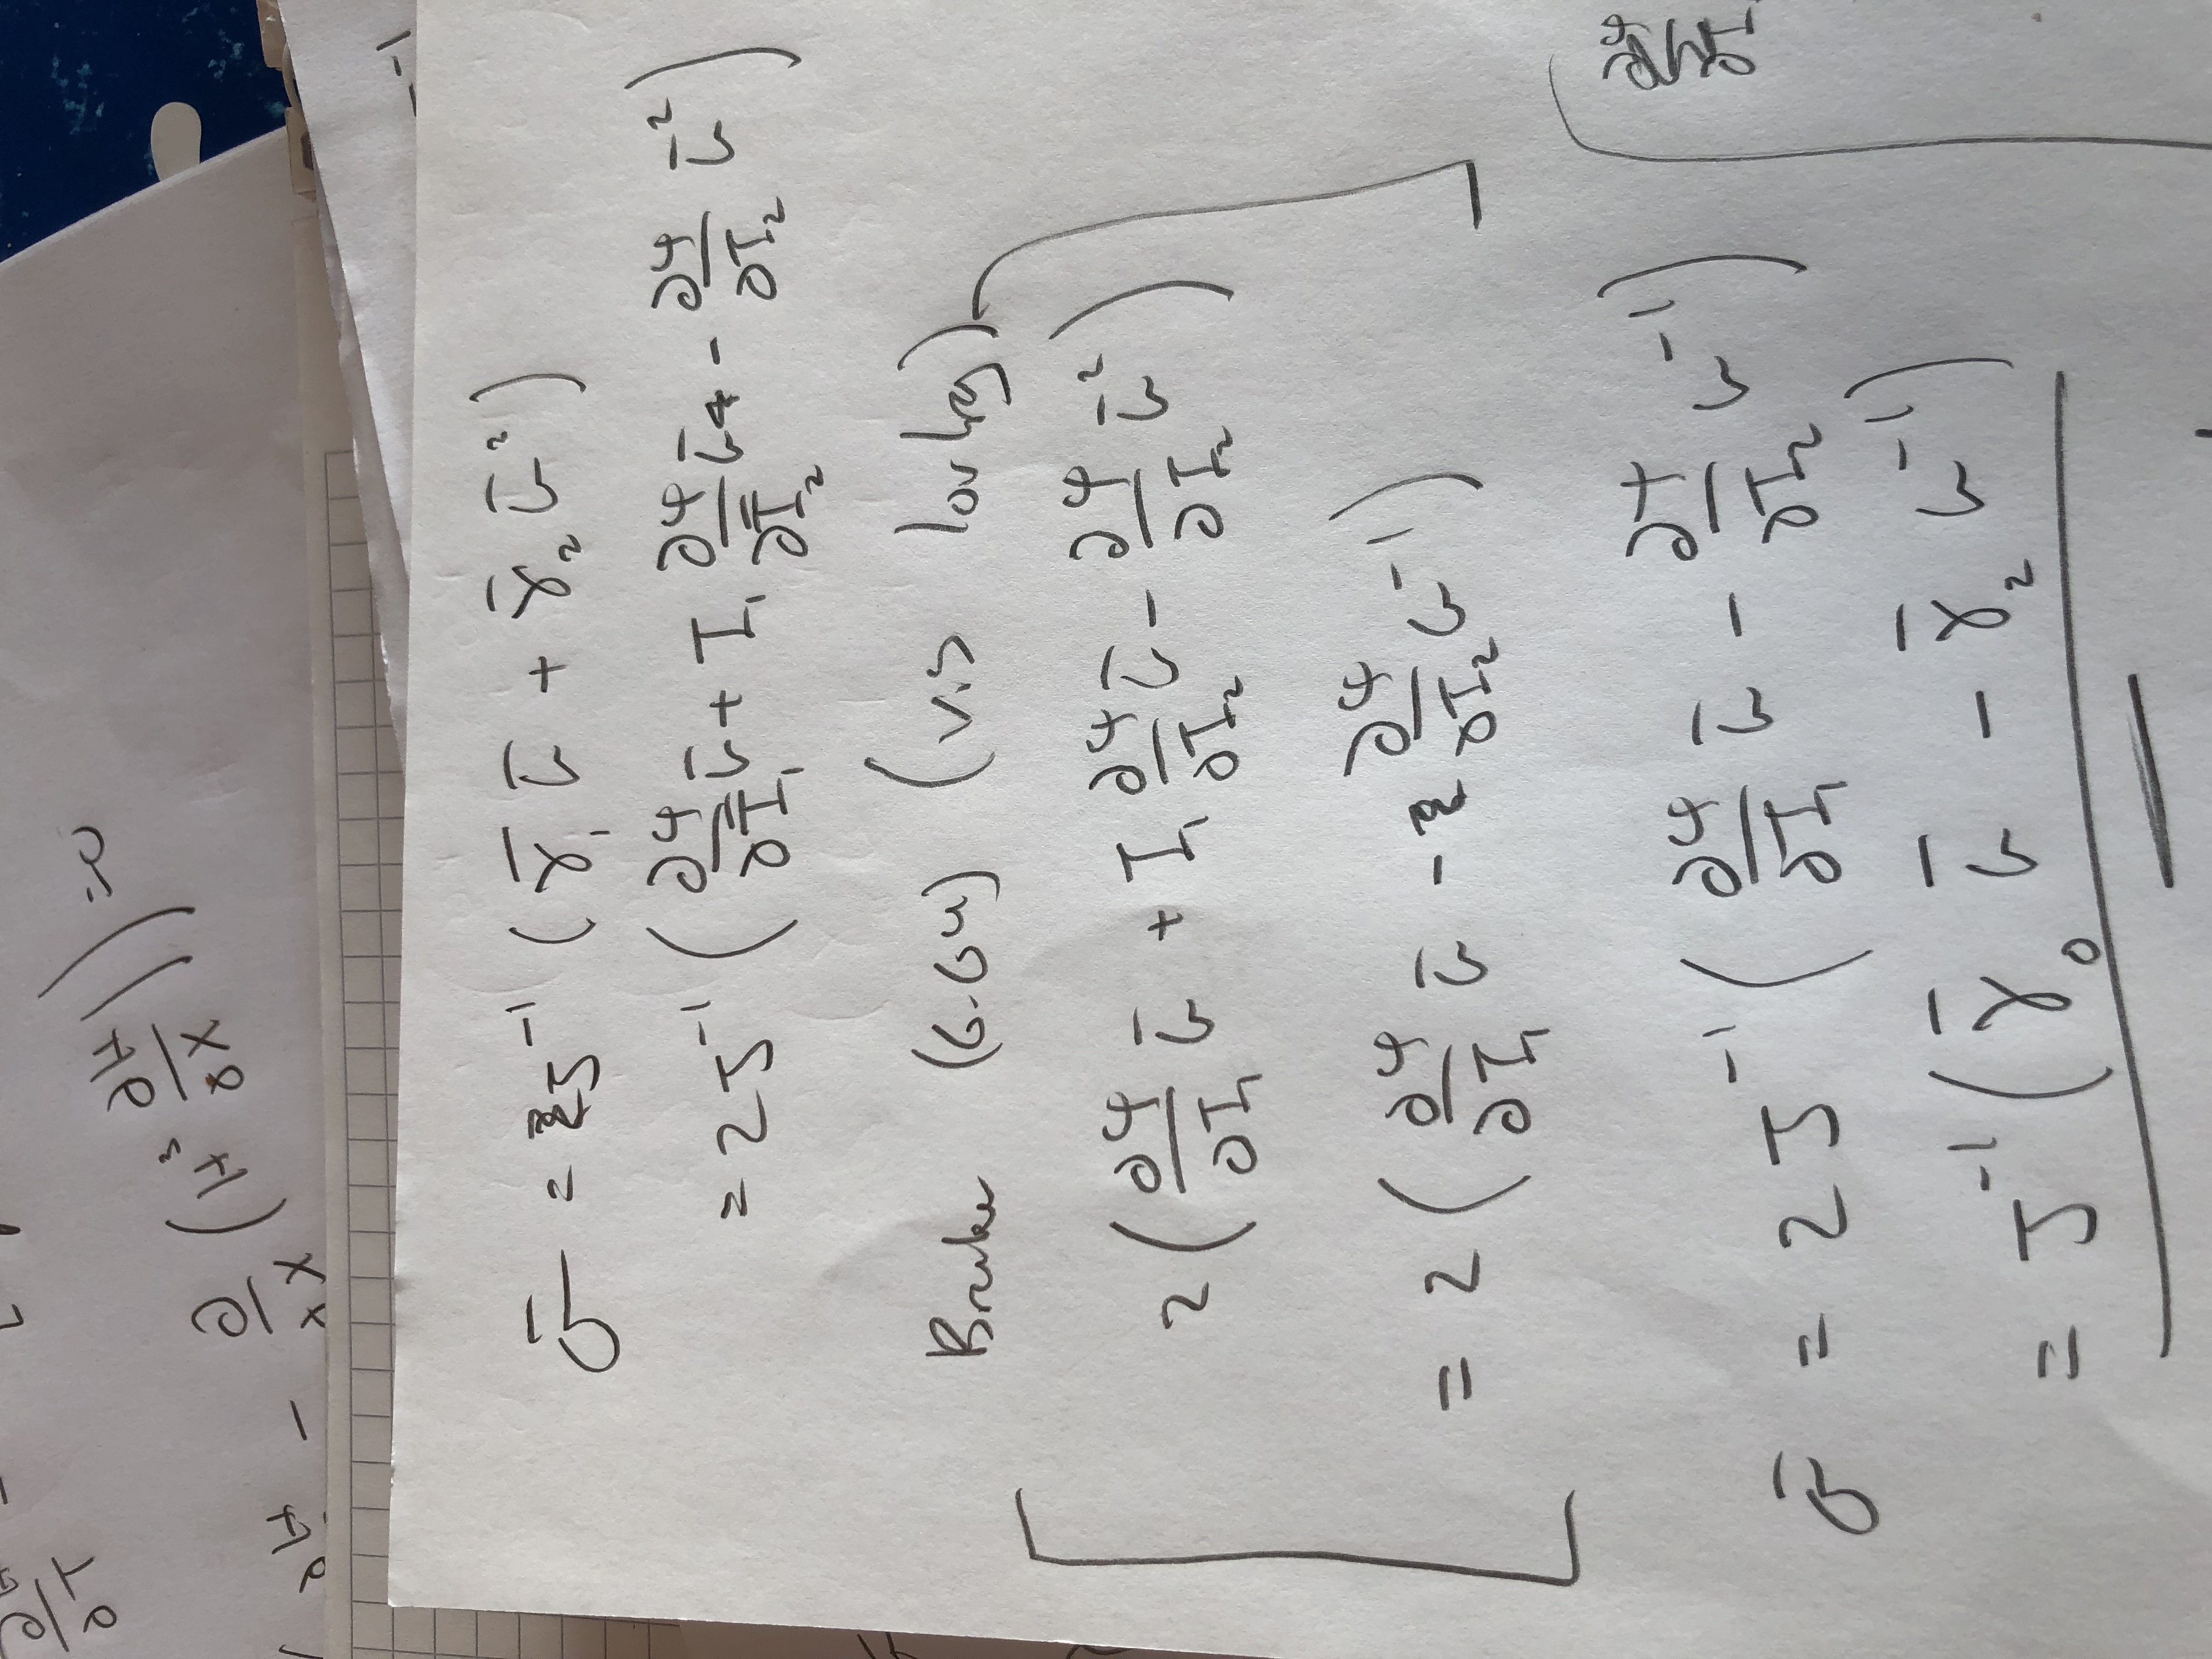 ∂/∂T
∂H - ∂/∂X (H³ ∂H/∂X)) = 0
-1
σ̄ = J⁻¹ (γ̄₁ b̄ + γ̄₂ b̄²)
= 2J⁻¹ (∂Ψ/∂I₁ b̄ + I₁ ∂Ψ/∂I₂ b̄ - ∂Ψ/∂I₂ b̄²)
Bruker (6.64) (vis
2(∂Ψ/∂I₁ b̄ + I₁ ∂Ψ/∂I₂ b̄ - ∂Ψ/∂I₂ b̄²)
= 2(∂Ψ/∂I₁ b̄ - ∂Ψ/∂I₂ b⁻¹)
σ̄ = 2J⁻¹ (∂Ψ/∂I₁ b̄ - ∂Ψ/∂I₂ b⁻¹)
= J⁻¹ (γ̄₀ b̄ - γ̄₂ b⁻¹)